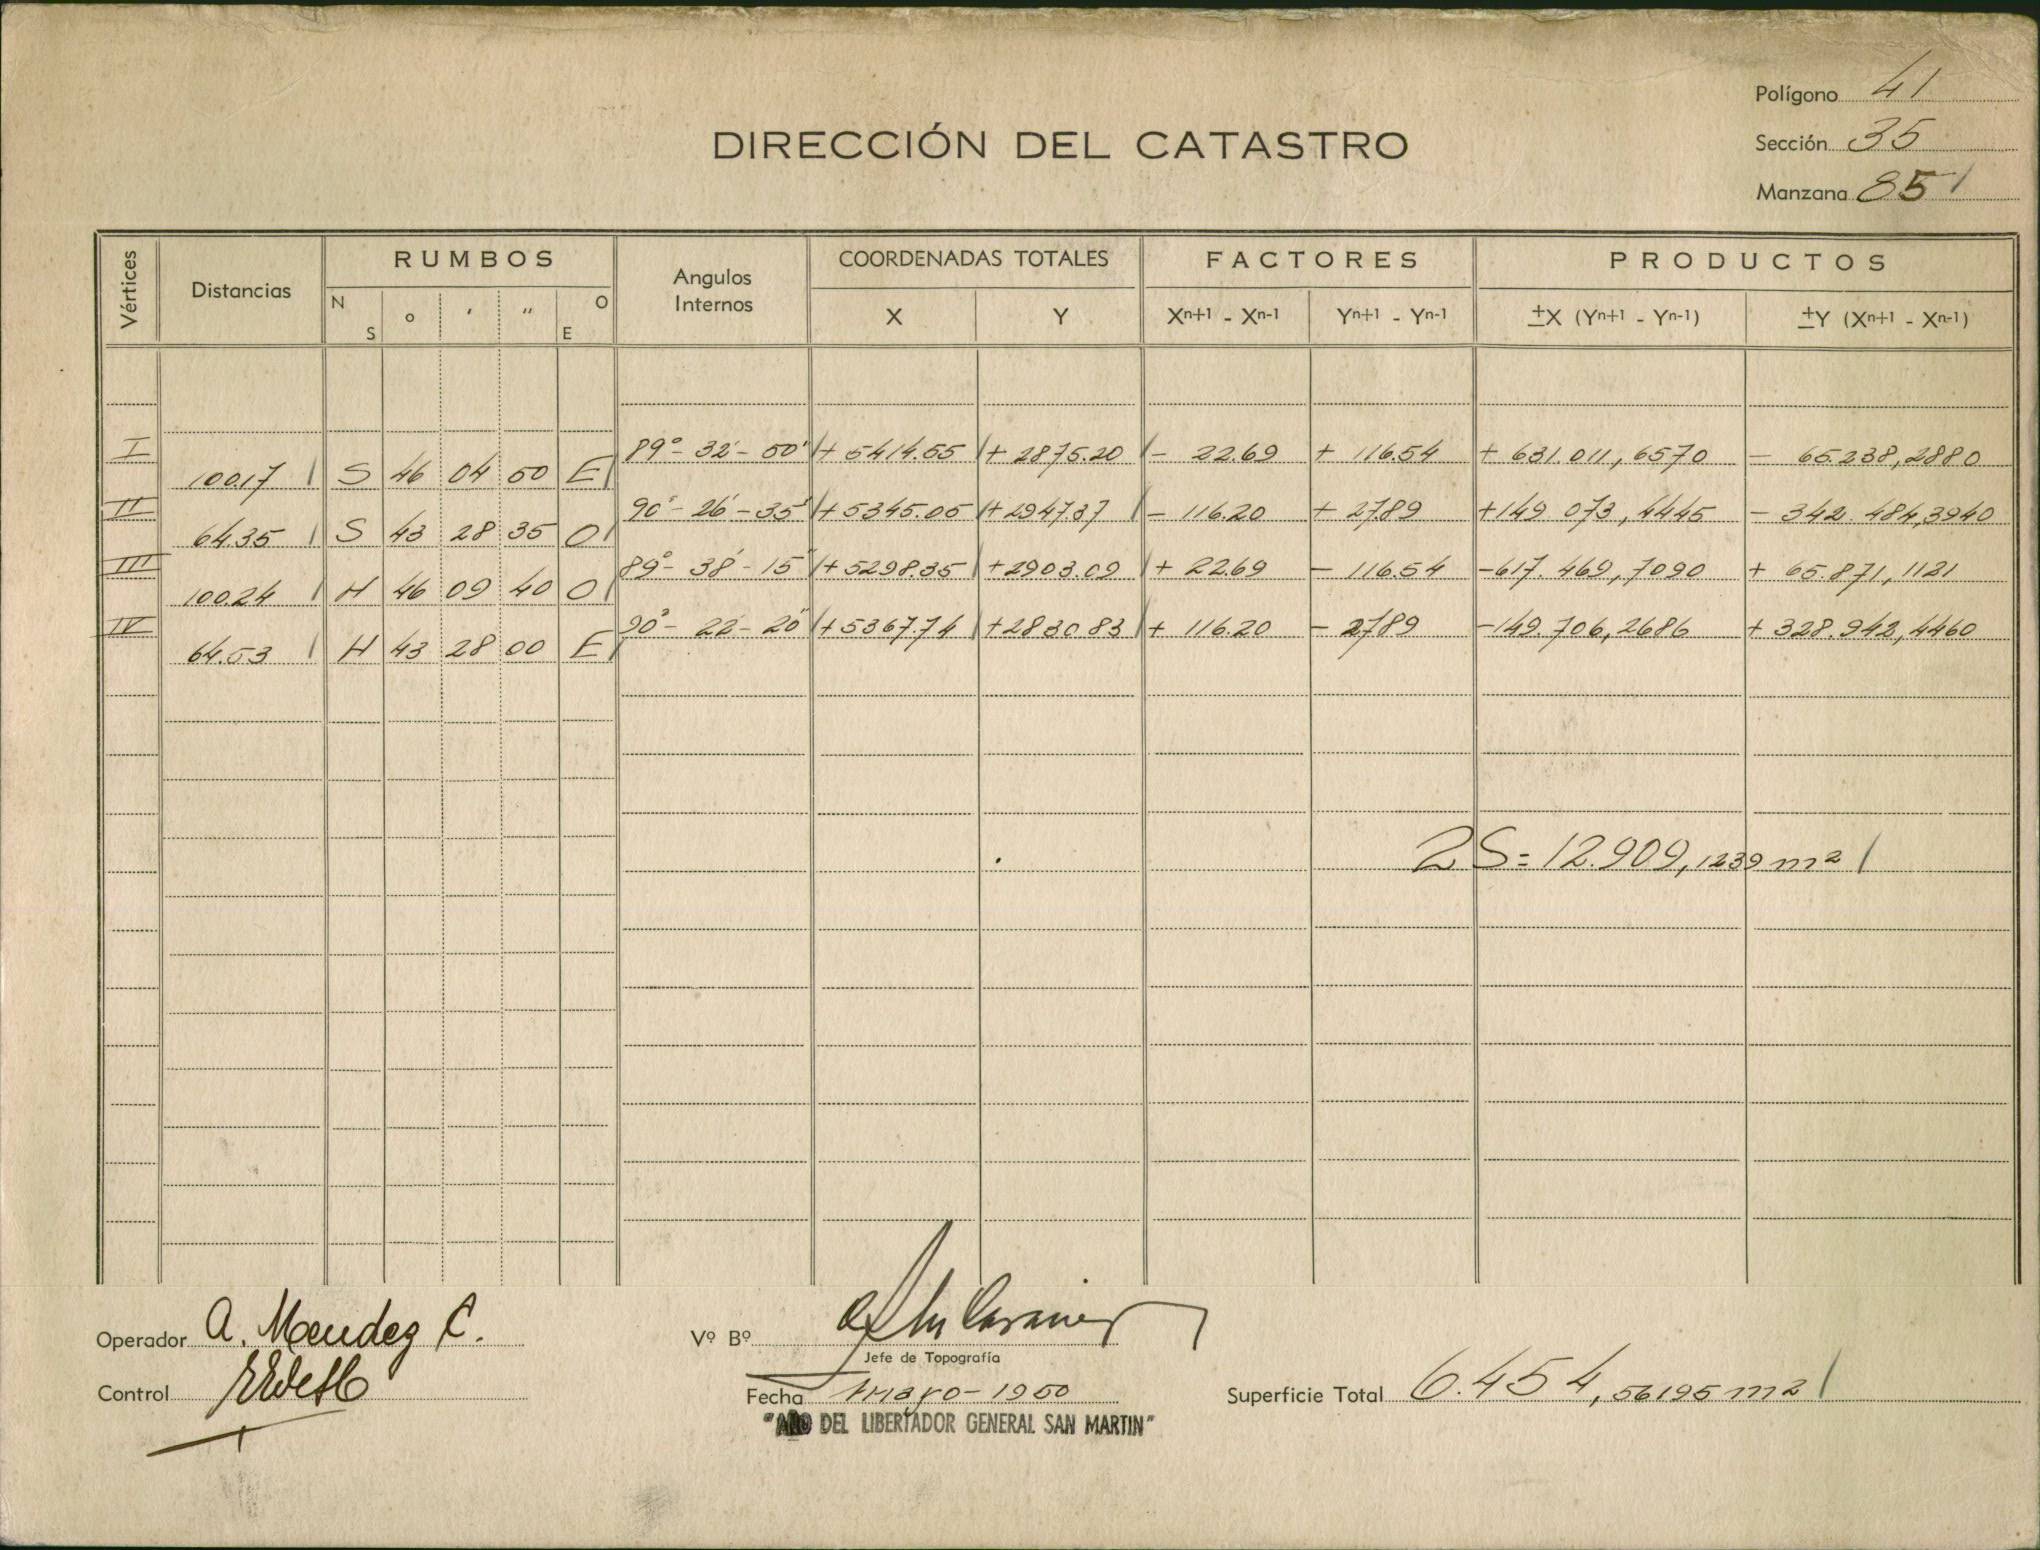 Polígono 41
DIRECCIÓN DEL CATASTRO
Sección 35
Manzana 85
Vértices Distancias RUMBOS Angulos Internos COORDENADAS TOTALES FACTORES PRODUCTOS
N S ° ' " O E X Y Xn+1 - Xn-1 Yn+1 - Yn-1 ±X (Yn+1 - Yn-1) ±Y (Xn+1 - Xn-1)
I 89° - 32' - 50" + 5414.55 + 2875.20 - 22.69 + 116.54 + 631.011,6570 - 65.238,2880
100.17 S 46 04 50 E
II 90° - 26' - 35" + 5345.05 + 2947.37 - 116.20 + 27.89 + 149.073,4445 - 342.484,3940
64.35 S 43 28 35 O
III 89° - 38' - 15" + 5298.35 + 2903.09 + 22.69 - 116.54 - 617.469,7090 + 65.871,1121
100.24 N 46 09 40 O
IV 90° - 22' - 20" + 5367.74 + 2830.83 + 116.20 - 27.89 - 149.706,2686 + 328.942,4460
64.53 N 43 28 00 E
2S = 12.909,1239 m2
Operador A. Mendez C.
Vº Bº
Jefe de Topografía
Control
Fecha Mayo - 1950
Superficie Total 6.454,56195 m2
"AÑO DEL LIBERTADOR GENERAL SAN MARTIN"